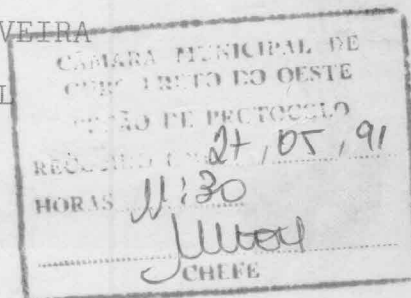 VEIRA
L
CÂMARA MUNICIPAL DE
OURO PRETO DO OESTE
DE PROTOCOLO
RECEBIDO 05, 91
HORAS 11:30
CHEFE